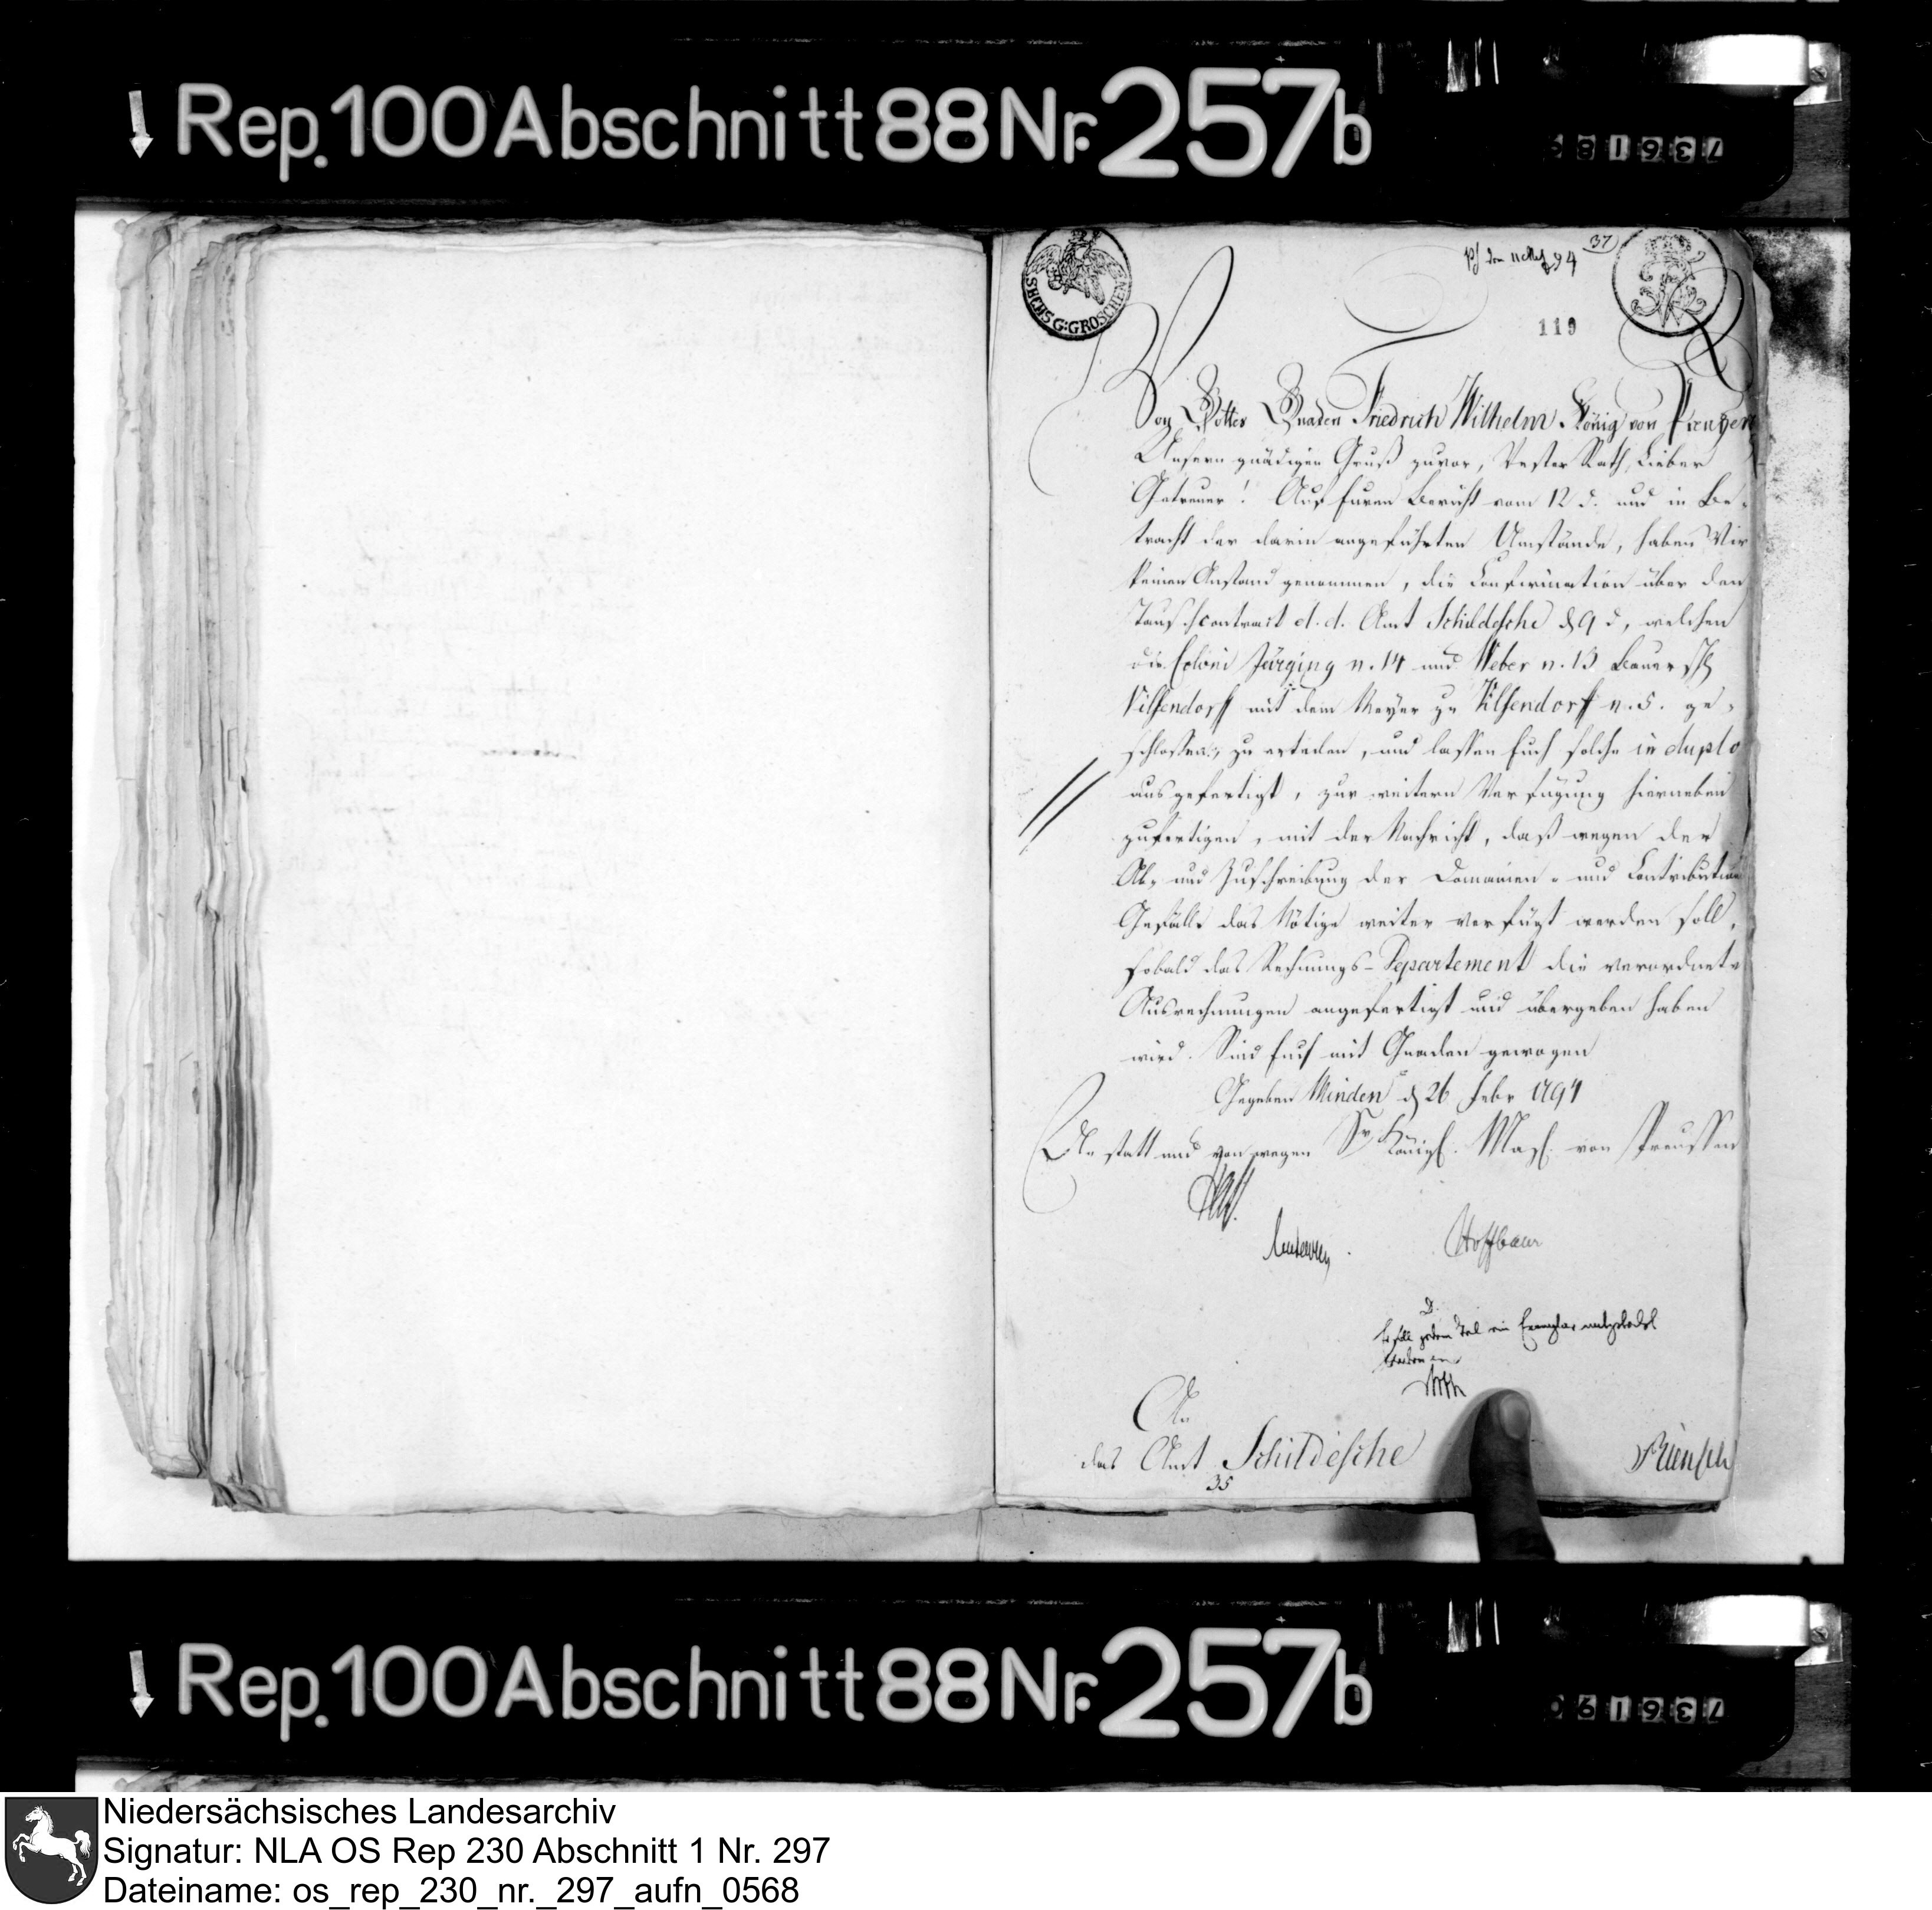 Rep. 100 Abschnitt 88 Nr. 257b
736189
SECHS G: GROSCHEN
37
119
Von Gottes Gnaden Friedrich Wilhelm König von Preußen
Unsern gnädigen Gruß zuvor, Vester Rath, Lieber
Getreuer! Auf Euren Bericht vom 12 d. und in Be-
tracht der darin angeführten Umstände, haben Wir
keinen Anstand genommen, die Confirmation über den
Tauschcontract d. d. Amt Schildesche d 9 d, welchen
die Coloni Jürging n. 14 und Weber n. 13 Bauersch
Vilsendorff mit dem Meyer zu Vilsendorff n. 5. ge-
schlossen, zu erteilen, und lassen Euch solche in duplo
ausgefertigt, zur weitern Verfügung hierneben
zufertigen, mit der Nachricht, daß wegen der
Ab- und Zuschreibung der Domainen- und Contributions
Gefälle das Nötige weiter verfügt werden soll,
sobald das Rechnungs-Departement die verordnete
Ausrechnungen angefertigt und übergeben haben
wird. Sind Euch mit Gnaden gewogen
Gegeben Minden d 26 Febr 1794
An statt und von wegen Sr Königl. Maj. von Preussen
Hoffbaur
ein Exemplar
An
das Amt Schildesche
35
Rep. 100 Abschnitt 88 Nr. 257b
736190
Niedersächsisches Landesarchiv
Signatur: NLA OS Rep 230 Abschnitt 1 Nr. 297
Dateiname: os_rep_230_nr._297_aufn_0568